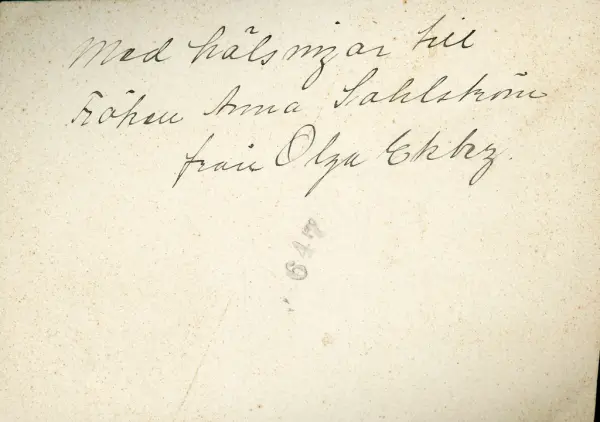 Med hälsningar till
Fröken Anna Sahlström
från Olga Ekberg.
647